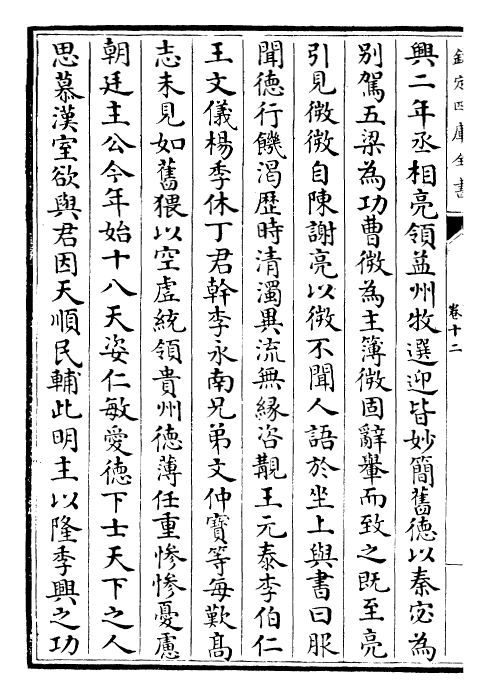 欽定四庫全書
卷十二
興二年丞相亮領益州牧選迎皆妙簡舊德以秦宓為
別駕五梁為功曹微為主簿微固辭轝而致之既至亮
引見微微自陳謝亮以微不聞人語於坐上與書曰服
聞德行饑渴歴時清濁異流無縁咨覯王元泰李伯仁
王文儀楊季休丁君幹李永南兄弟文仲寳等每歎髙
志未見如舊猥以空虚統領貴州德薄任重慘慘憂慮
朝廷主公今年始十八天姿仁敏愛德下士天下之人
思慕漢室欲與君因天順民輔此明主以隆季興之功